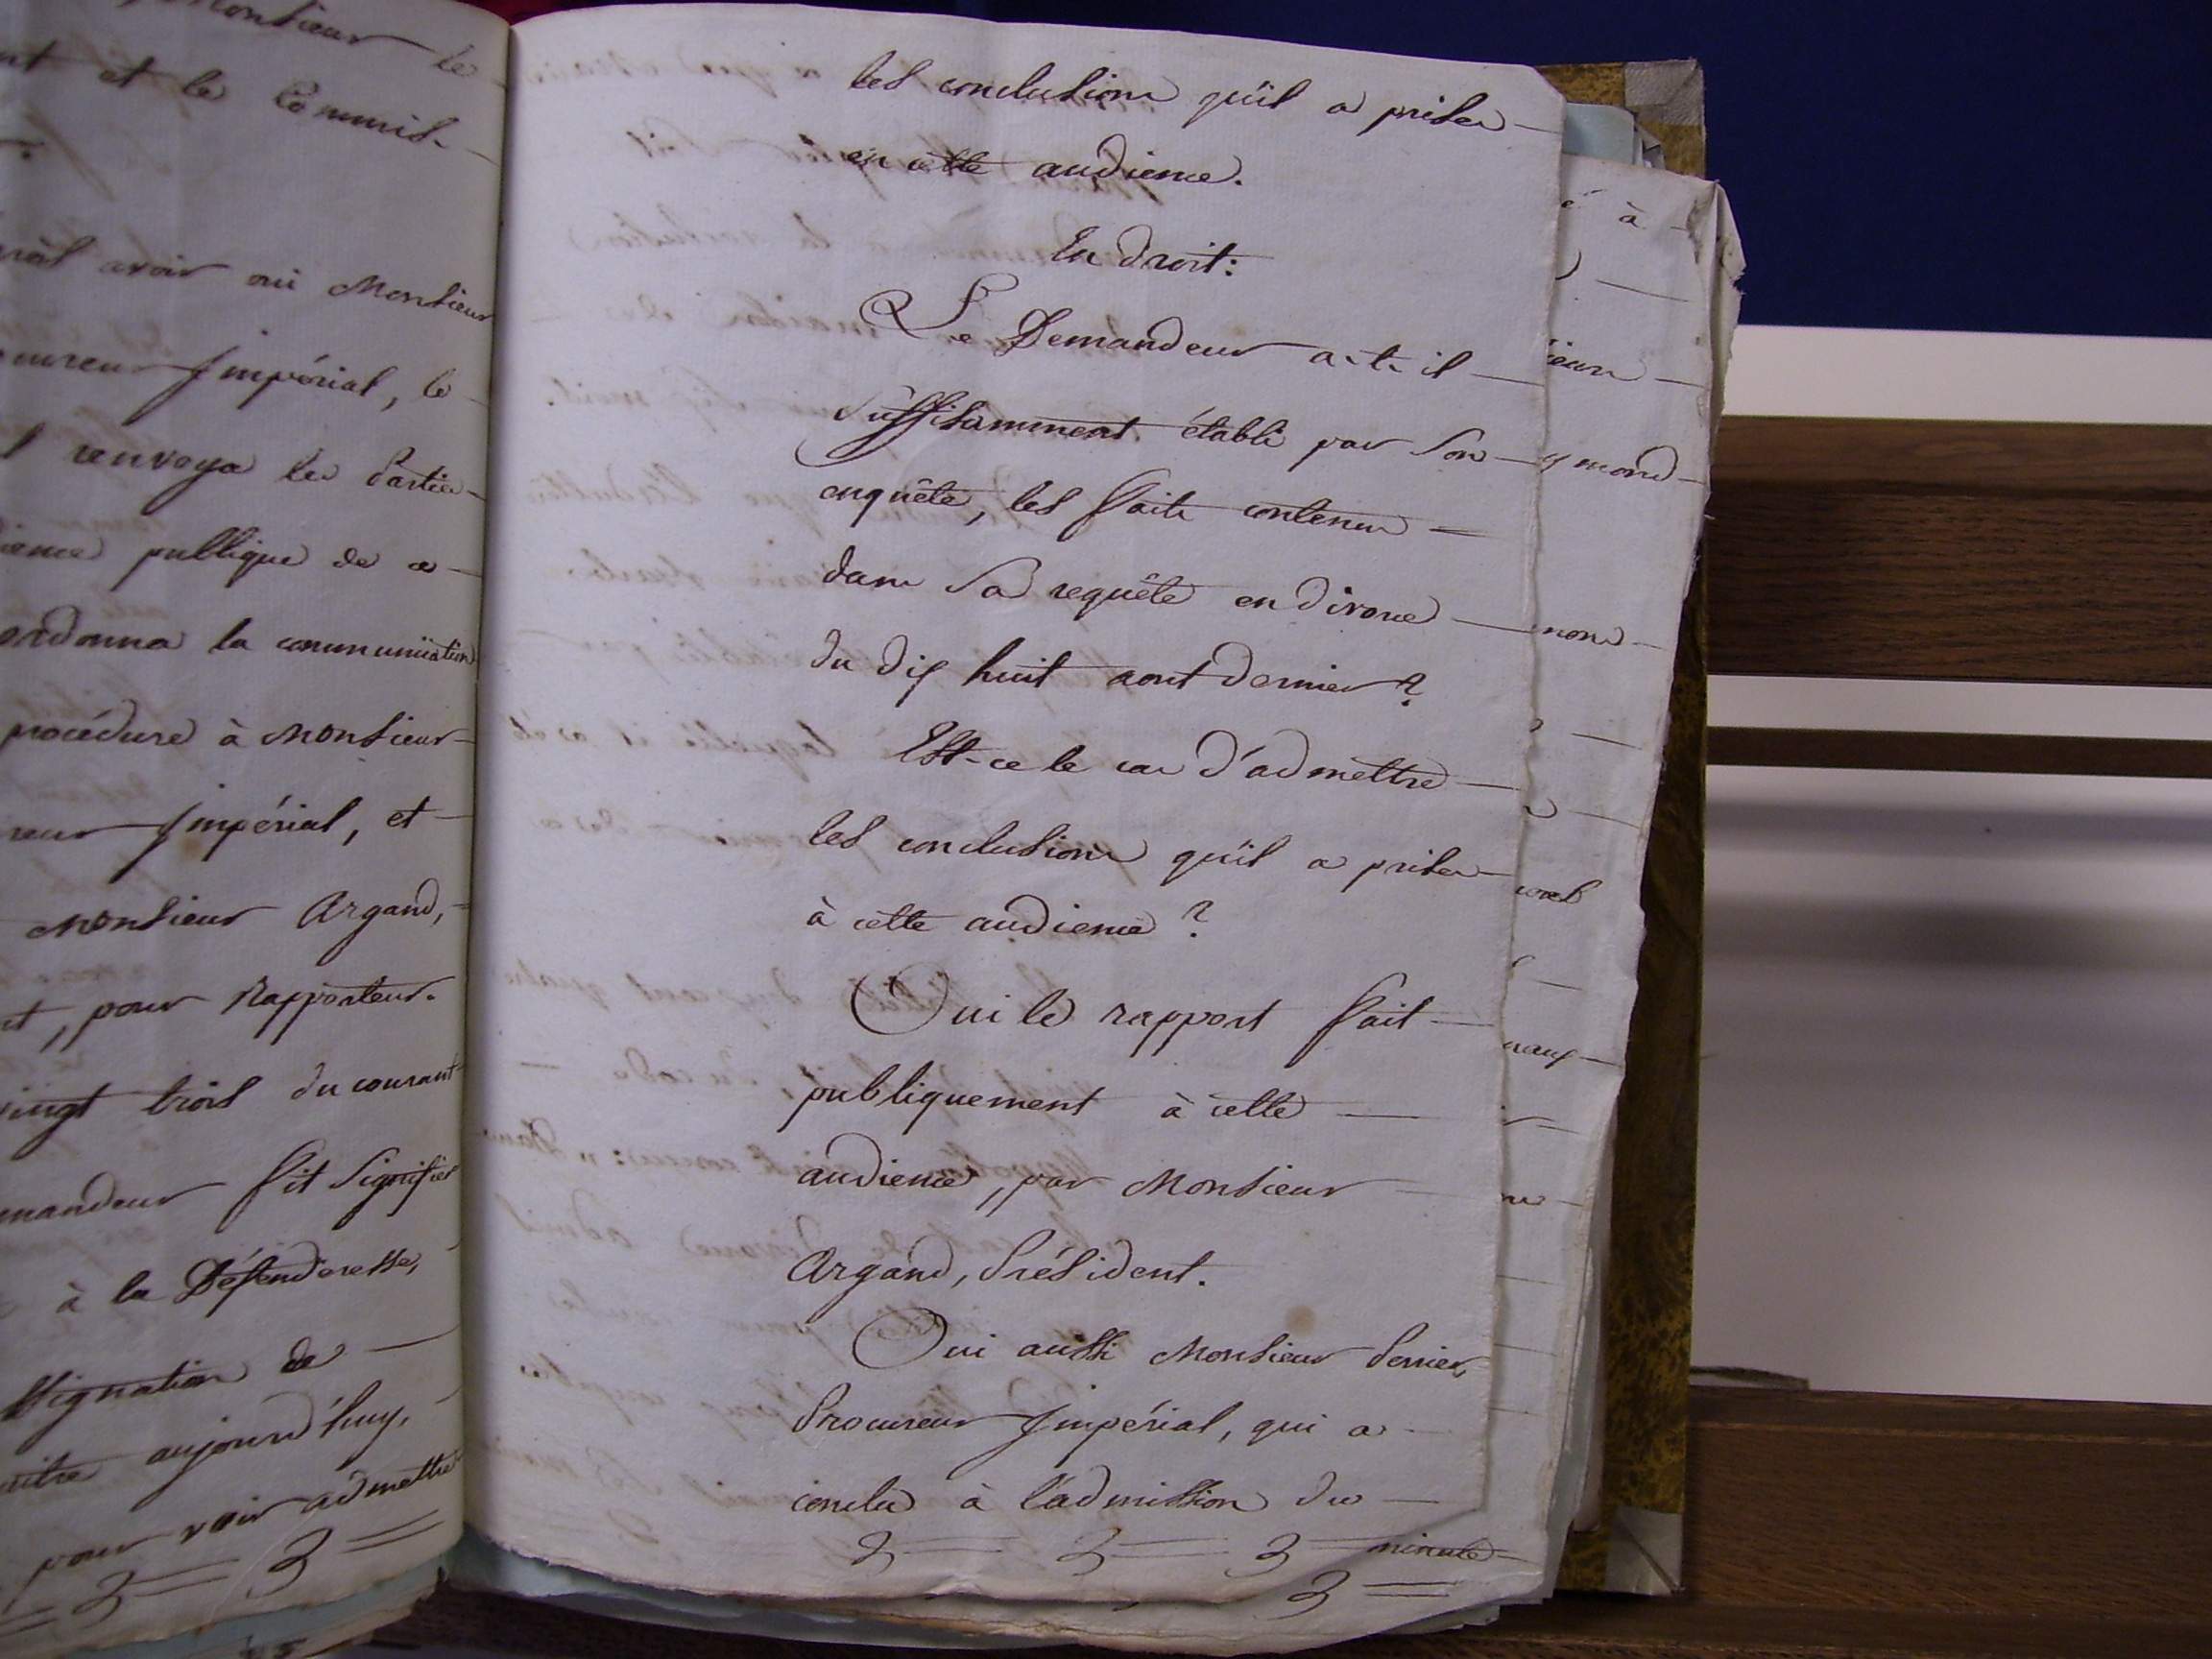 Monsieur le
nt et le Commis-
avoir oui Monsieur
cureur Impérial, le
l renvoya les Parties
ience publique de ce
ordonna la communication
procédure à Monsieur
reur Impérial, et
Monsieur Argand,
t, pour Rapporteur.
vingt trois du courant
mandeur fit signifier
à la Défenderesse,
ssignation de
aitre aujourd'huy,
pour voir admettre
les conclusions qu'il a prises
en cette audience.
En droit:
Le Demandeur a-t-il
suffisamment établi par son
enquête, les faits contenus
dans sa requête en divorce
du dix huit aout dernier ?
Est-ce le cas d'admettre
les conclusions qu'il a prises
à cette audience ?
Oui le rapport fait
publiquement à cette
audience, par Monsieur
Argand, Président.
Oui aussi Monsieur Perrier
Procureur Impérial, qui a
conclu à l'admission du
minute